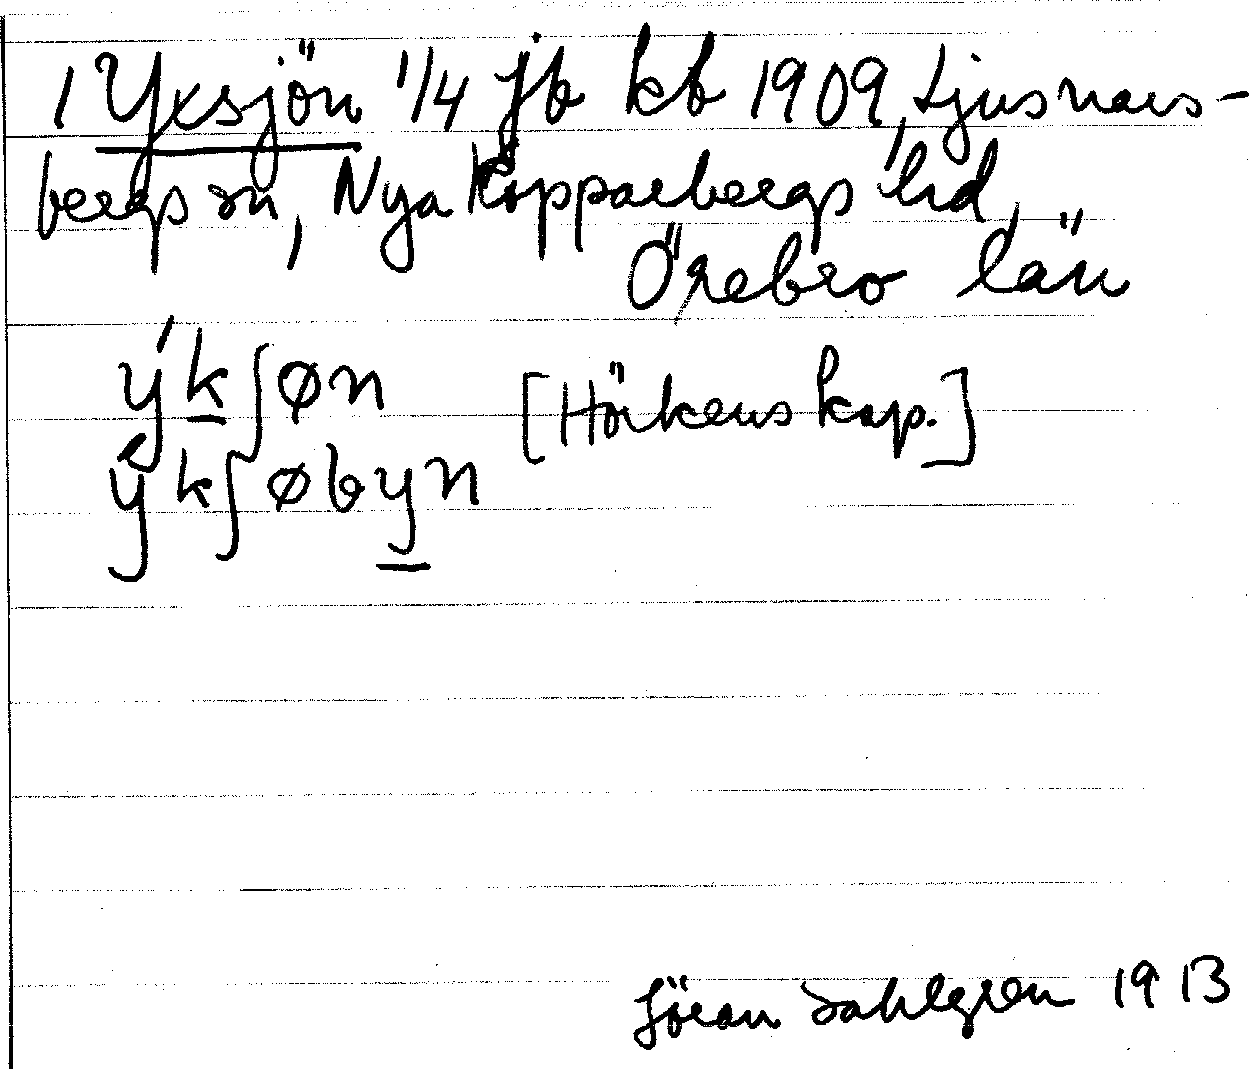 1 Yxsjön 1/4 jb kb 1909, Ljusnars-
bergs sn, Nya Kopparbergs hd,
Örebro län
ýkʃøn [Hörkens kap.]
ýkʃøbyn
Jöran Sahlgren 1913